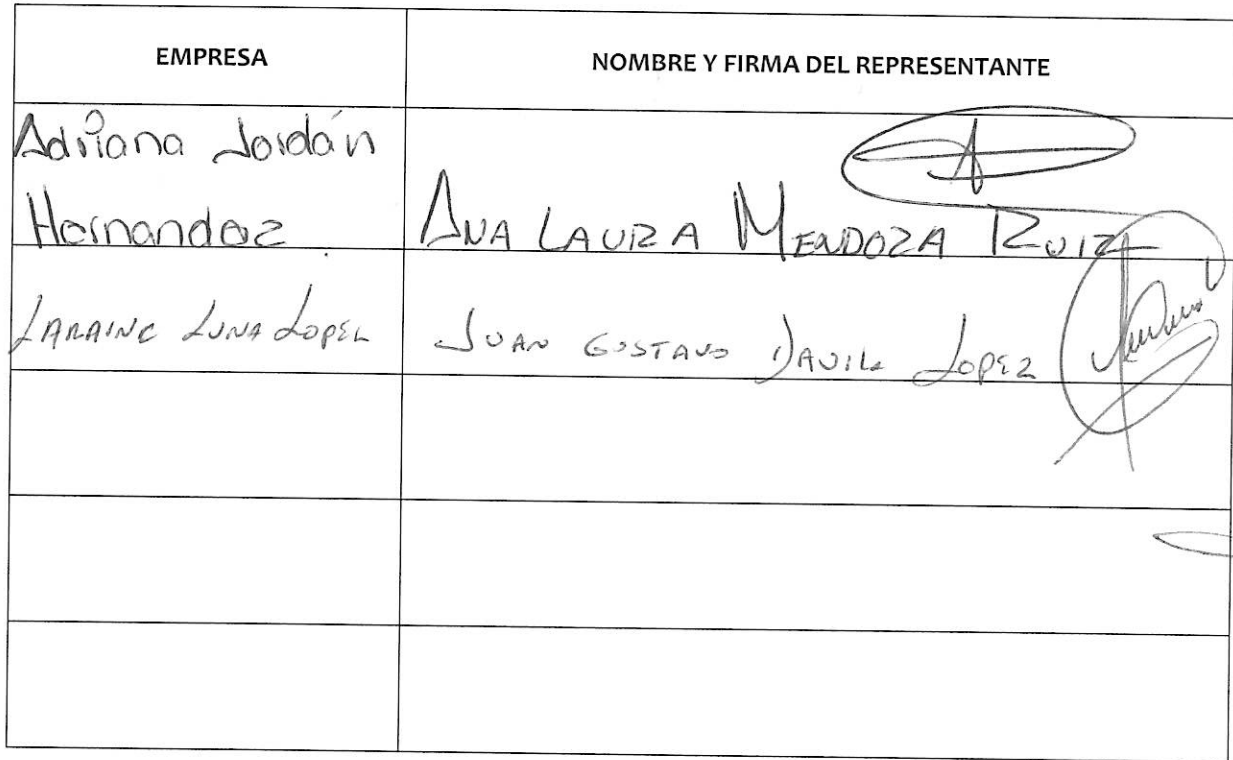 EMPRESA
NOMBRE Y FIRMA DEL REPRESENTANTE
Adriana Jordán
Hernandez
ANA LAURA MENDOZA RUIZ
LARAINE LUNA LOPEZ
JUAN GUSTAVO DAVILA LOPEZ